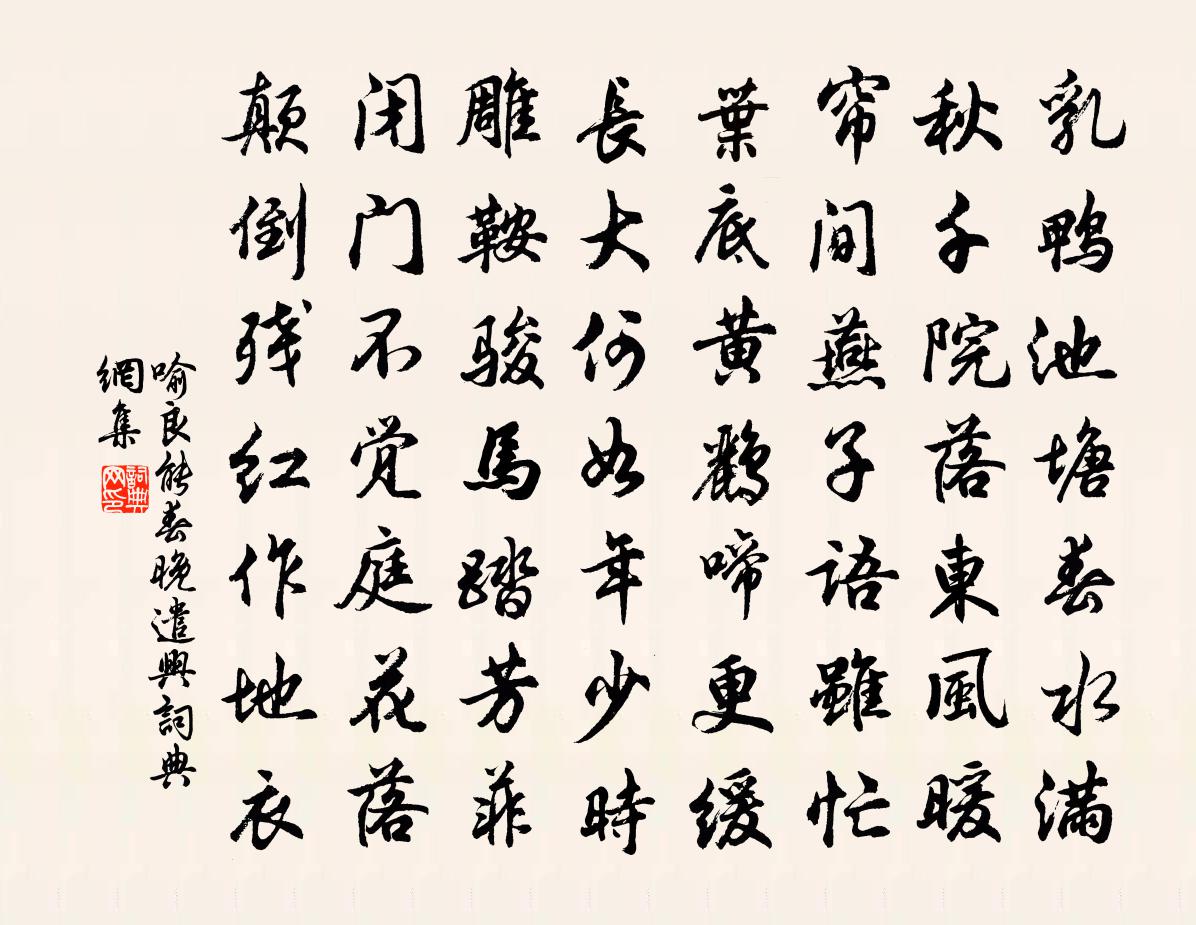 乳鸭池塘春水满
秋千院落東風暖
帘间燕子語雖忙
葉底黄鸝啼更缓
長大何如年少時
雕鞍骏馬踏芳菲
闭门不觉庭花落
颠倒残红作地衣
喻良能春晚遣興詞典
網集
詞典
网印